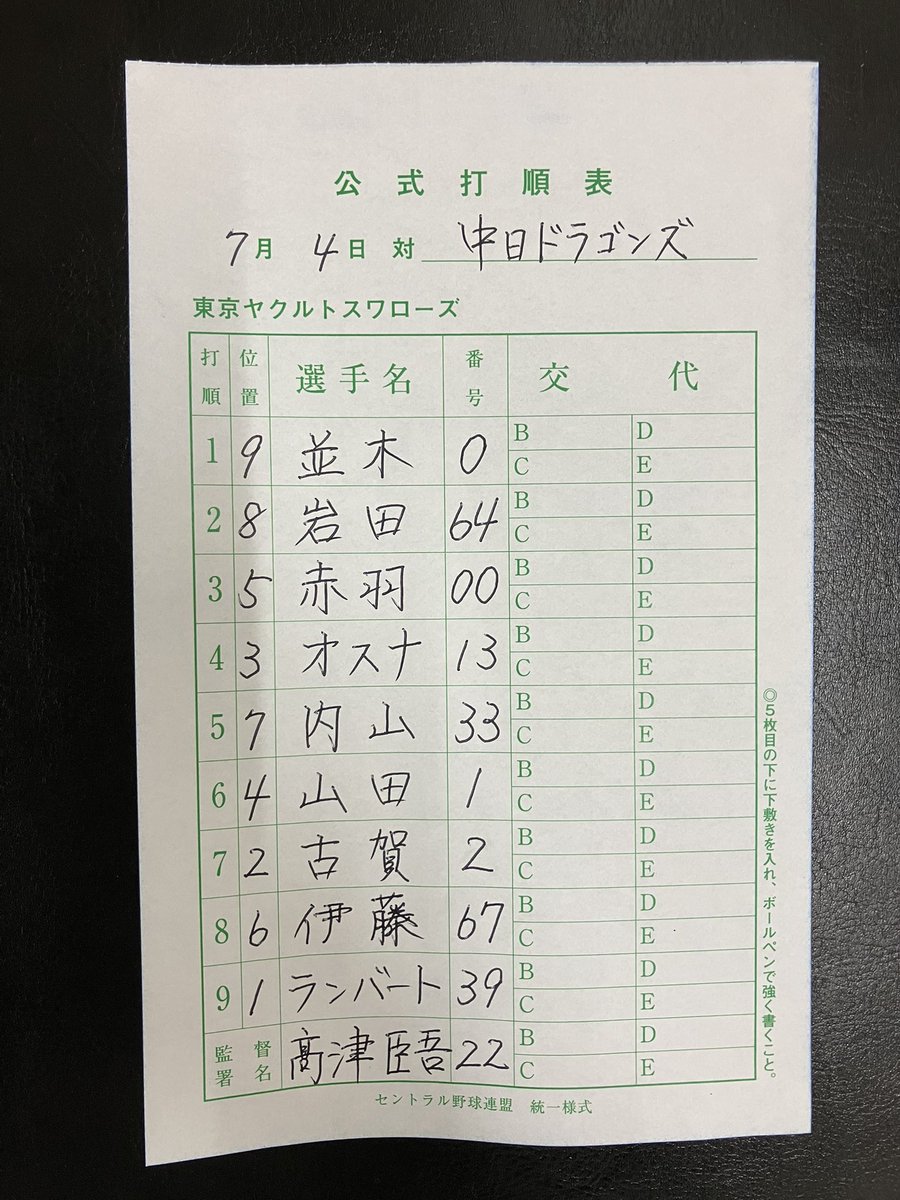 公式打順表
7月 4日 対 中日ドラゴンズ
東京ヤクルトスワローズ
打順 位置 選手名 番号 交代
1 9 並木 0 B D
C E
2 8 岩田 64 B D
C E
3 5 赤羽 00 B D
C E
4 3 オスナ 13 B D
C E
5 7 内山 33 B D
C E
6 4 山田 1 B D
C E
7 2 古賀 2 B D
C E
8 6 伊藤 67 B D
C E
9 1 ランバート 39 B D
C E
監督署名 髙津臣吾 22 B D
C E
セントラル野球連盟 統一様式
◎5枚目の下に下敷きを入れ、ボールペンで強く書くこと。